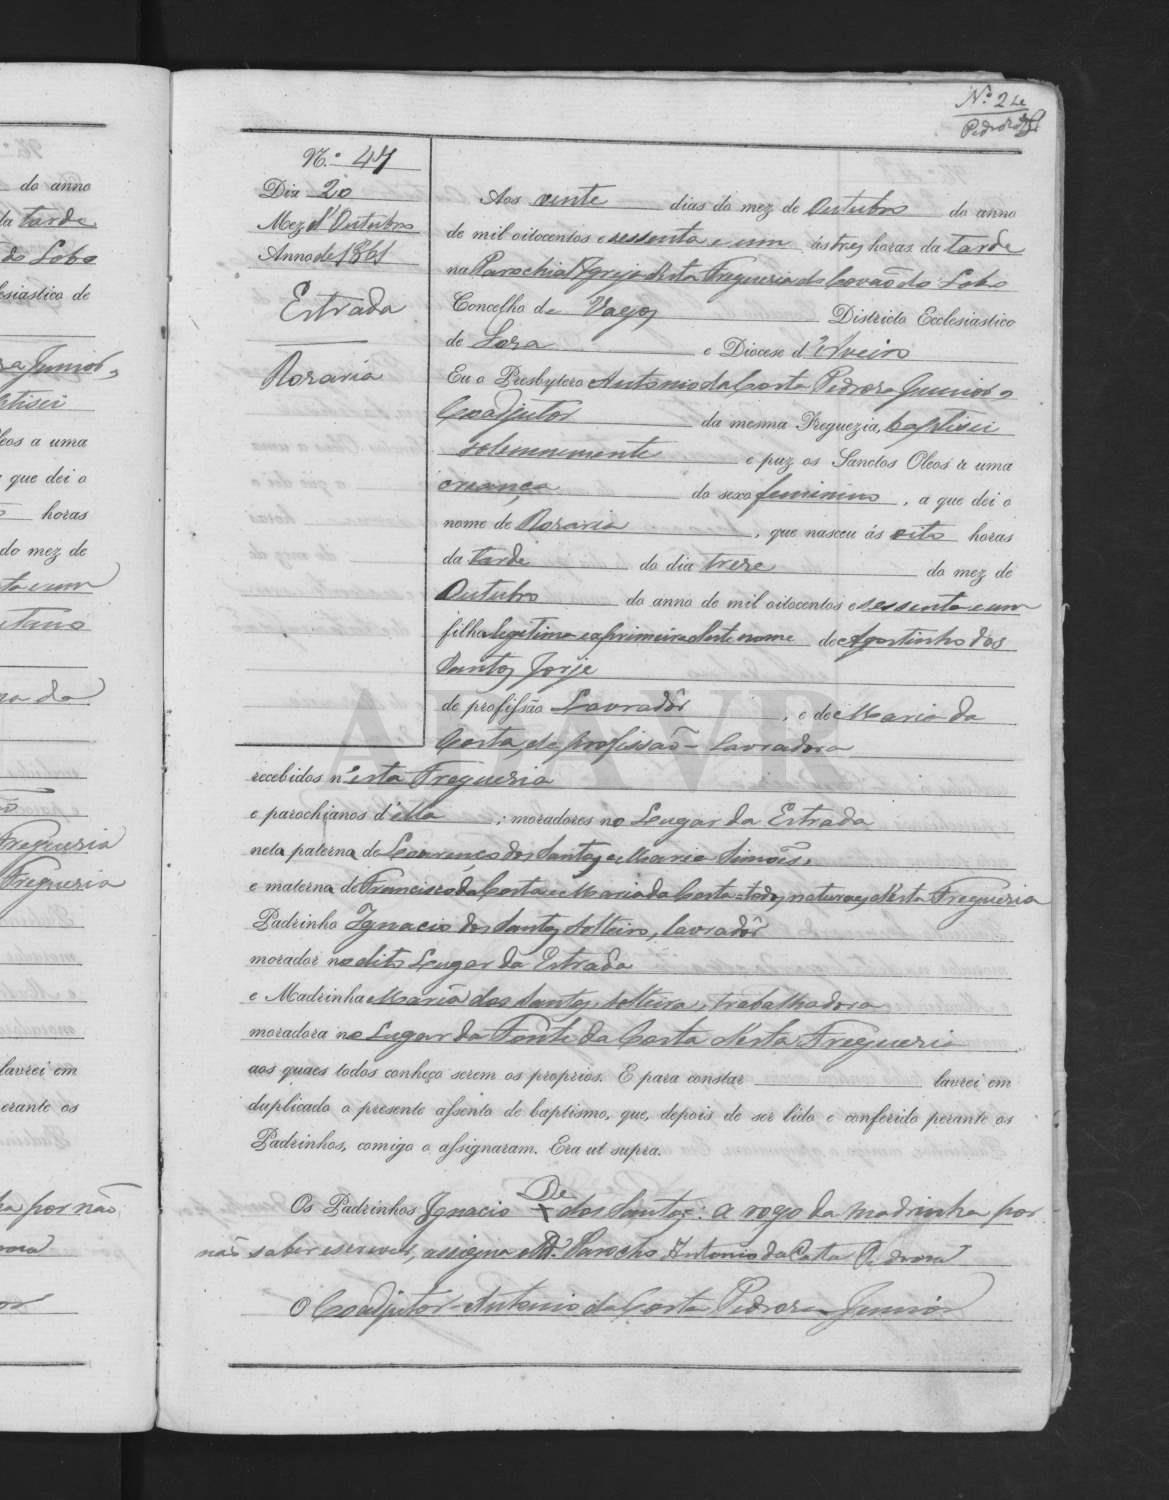 Nº 24
Pedroza
N.º 47
Dia 20
Mez d'Outubro
Anno de 1861
Estrada
Rosaria
Aos vinte dias do mez de Outubro do anno
de mil oitocentos e sessenta e um ás trez horas da tarde
na Parochial Igreja d'esta Freguezia do Covão do Lobo
Concelho de Vagos Districto Ecclesiastico
de Soza e Diocese d'Aveiro
Eu o Presbytero Antonio da Costa Pedroza Junior
Coadjutor da mesma Freguezia, baptisei
solemnemente e puz os Sanctos Oleos a uma
criança do sexo feminino, a que dei o
nome de Rosaria, que nasceu ás oito horas
da tarde do dia treze do mez de
Outubro do anno de mil oitocentos e sessenta e um
filha legitima e a primeira d'este nome de Agostinho dos
Santos Jorje
de profissão Lavradôr, e de Maria da
Costa, de profissão - lavradora
recebidos n'esta Freguezia
e parochianos d'ella; moradores no Lugar da Estrada
neta paterna de Lourenço dos Santos e Maria Simões,
e materna de Francisco da Costa e Maria da Costa - todos naturaes d'esta Freguezia
Padrinho Ignacio dos Santos solteiro, lavradôr
morador no dito Lugar da Estrada
e Madrinha Maria dos Santos, solteira, trabalhadora
moradora no Lugar da Fonte da Costa d'esta Freguezia
aos quaes todos conheço serem os proprios. E para constar lavrei em
duplicado o presente assento de baptismo, que, depois de ser lido e conferido perante os
Padrinhos, comigo o assignaram. Era ut supra.
Os Padrinhos Ignacio De + dos Santos: A rogo da madrinha por
não saber escrever, assigna o Rd.º Parocho Antonio da Costa Pedroza
O Coadjutôr - Antonio da Costa Pedroza Juniôr
ADAVR
do anno
da tarde
do Lobo
lesiastico de
za Junior,
ptisei
leos a uma
que dei o
horas
do mez de
ta e um
etano
ra da
Freguezia
Freguezia
lavrei em
erante os
ha por não